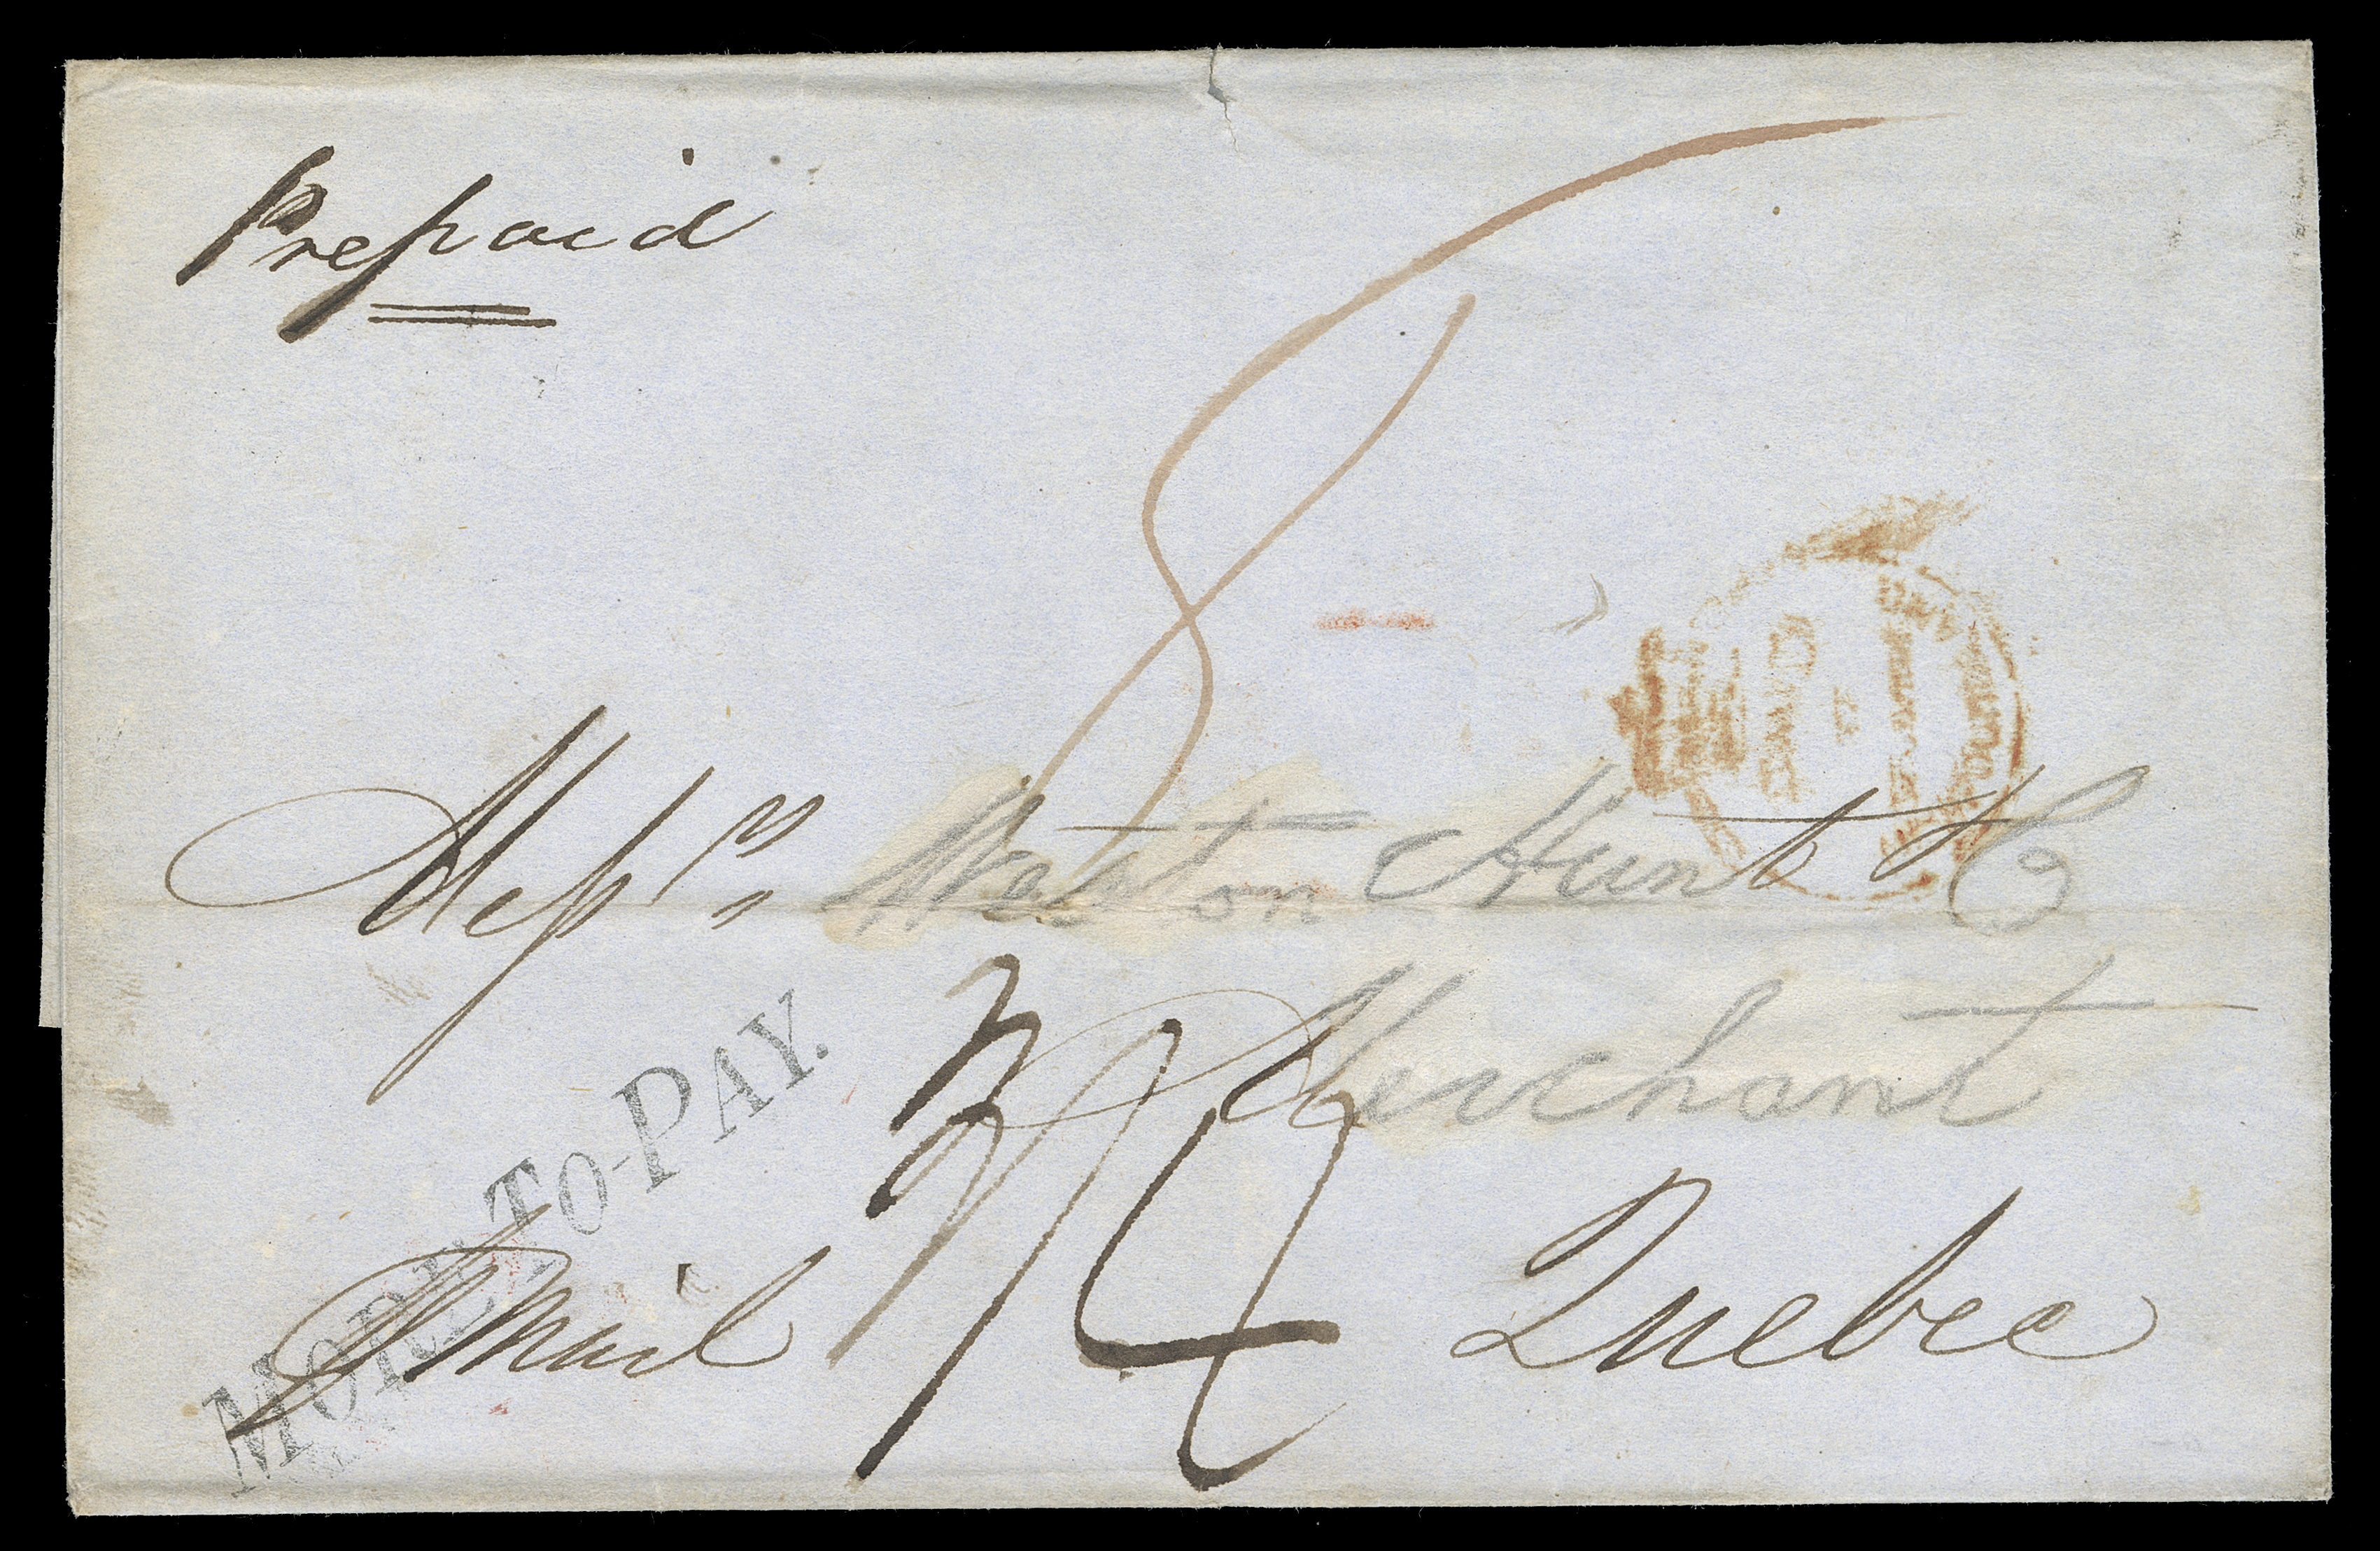 Prepaid
8
PAID
Messrs Weston Hunt & Co
Merchant
MORE-TO-PAY.
P Mail
1/4
Quebec